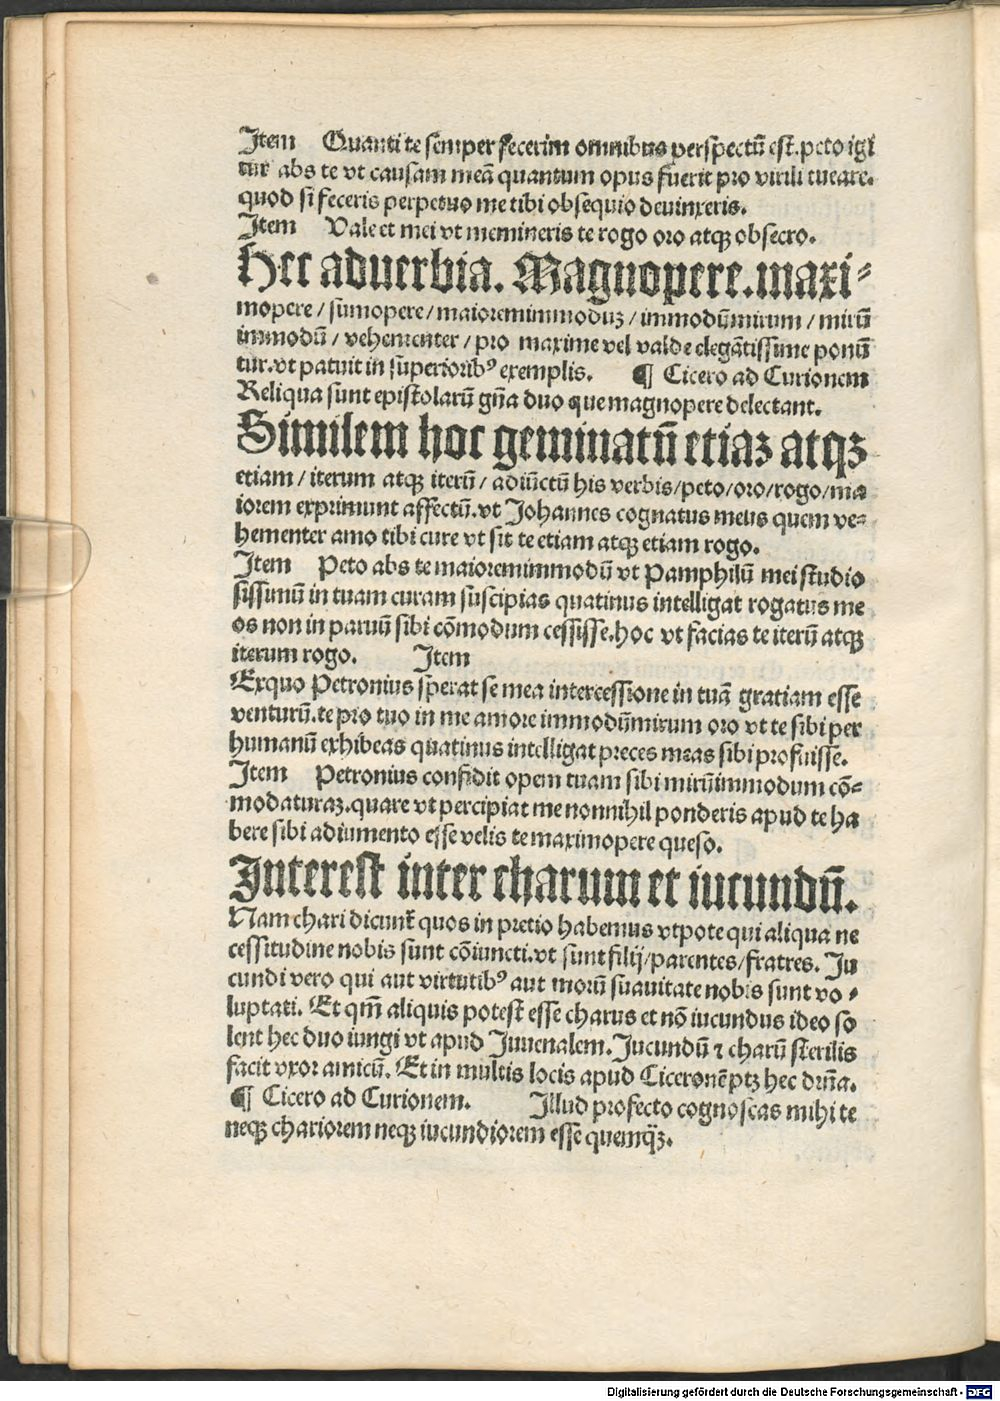 Item Quanti te semper fecerim omnibus perspectū est. peto igi
tur abs te vt causam meā quantum opus fuerit pro virili tueare.
quod si feceris perpetuo me tibi obsequio deuinxeris.
Item Vale et mei vt memineris te rogo oro atqꝫ obsecro.
Hec aduerbia. Magnopere. maxi⸗
mopere / sumopere / maioremimmoduꝫ / immodūmirum / mirū
immodū / vehementer / pro maxime vel valde elegātissime ponū
tur. vt patuit in superioribꝰ exemplis. ¶ Cicero ad Curionem
Reliqua sunt epistolarū gn̄a duo que magnopere delectant.
Similem hoc geminatū etiaꝫ atqꝫ
etiam / iterum atqꝫ iterū / adiūctū his verbis / peto / oro / rogo / ma
iorem exprimunt affectū. vt Johannes cognatus meus quem ve⸗
hementer amo tibi cure vt sit te etiam atqꝫ etiam rogo.
Item Peto abs te maioremimmodū vt Pamphilū mei studio
sissimū in tuam curam suscipias quatinus intelligat rogatus me
os non in paruū sibi cōmodum cessisse. hoc vt facias te iterū atqꝫ
iterum rogo. Item
Exquo Petronius sperat se mea intercessione in tuā gratiam esse
venturū. te pro tuo in me amore immodūmirum oro vt te sibi per
humanū exhibeas quatinus intelligat preces meas sibi profuisse.
Item Petronius confidit opem tuam sibi mirūimmodum cō⸗
modaturaꝫ. quare vt percipiat me nonnihil ponderis apud te ha
bere sibi adiumento esse velis te maximopere queso.
Interest inter charum et iucundū.
Nam chari dicunt̄ quos in pretio habemus vtpote qui aliqua ne
cessitudine nobis sunt cōiuncti. vt sunt filij / parentes / fratres. Ju
cundi vero qui aut virtutibꝰ aut morū suauitate nobis sunt vo⸗
luptati. Et qm̄ aliquis potest esse charus et nō iucundus ideo so
lent hec duo iungi vt apud Juuenalem. Jucundū ⁊ charū sterilis
facit vxor amicū. Et in multis locis apud Ciceronē ptꝫ hec dr̄na.
¶ Cicero ad Curionem. Illud profecto cognoscas mihi te
neqꝫ chariorem neqꝫ iucundiorem esse quemq̄ꝫ.
Digitalisierung gefördert durch die Deutsche Forschungsgemeinschaft - DFG